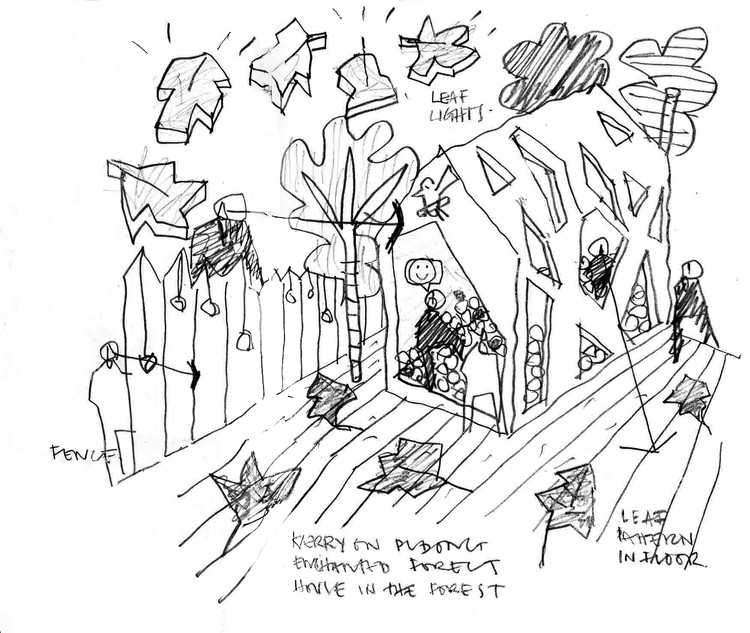 LEAF
LIGHTS.
FENCE
LEAF
PATTERN
IN FLOOR.
KERRY ON PUDONG
ENCHANTED FOREST
HOUSE IN THE FOREST